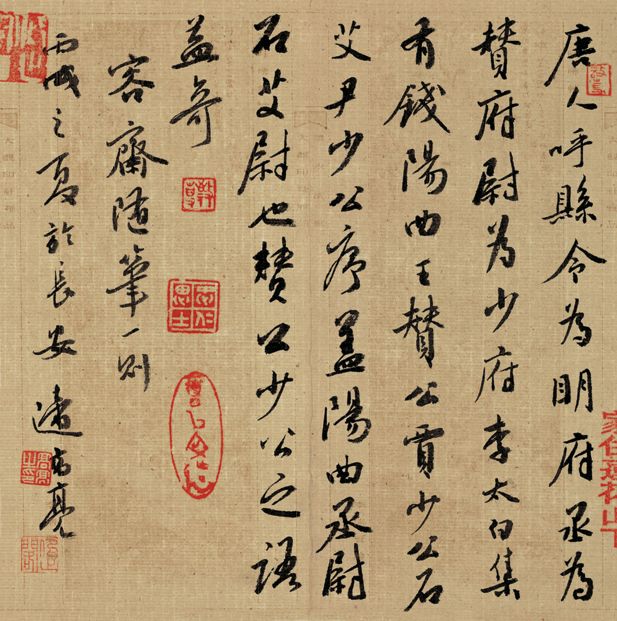 唐人呼縣令為明府丞為
賛府尉為少府李太白集
有錢陽曲王賛公賈少公石
艾尹少公序蓋陽曲丞尉
石艾尉也賛公少公之語
益奇
容齋隨筆一則
丙戌之夏於長安高亮